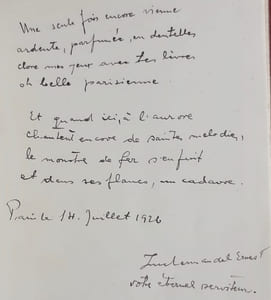 Une seule fois encore vienne
ardente, parfumée, en dentelles
clore mes yeux avec tes lèvres
oh belle parisienne.
Et quand ici, à l'aurore
chantent encore de saintes melodies,
le monstre de fer s'enfuit
et dans ses flancs, un cadavre.
Paris le 14. Juillet 1926
Ernest
votre éternel serviteur.